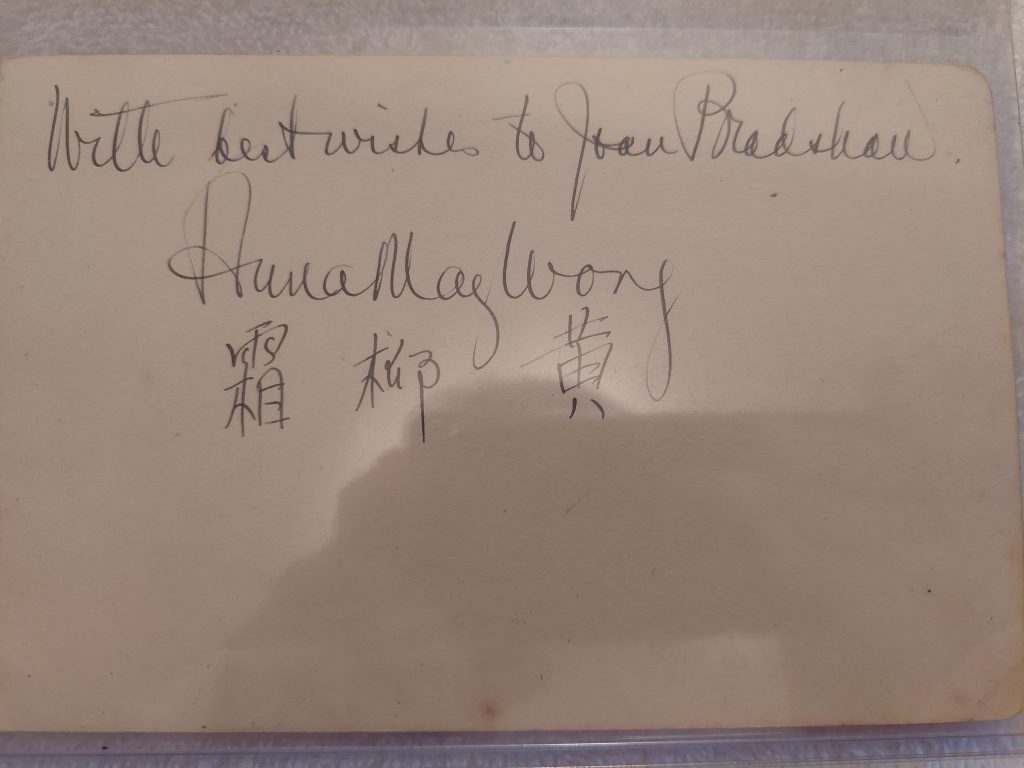 With best wishes to Joan Bradshaw.
Anna May Wong
霜 柳 黃